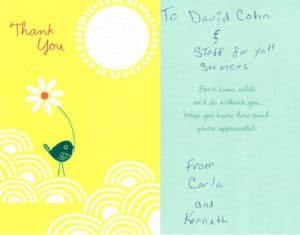 Thank
You
To David Cohn
&
Staff for yall
Services
Don't know what
we'd do without you.
Hope you know how much
you're appreciated.
From
Carla
and
Kenneth